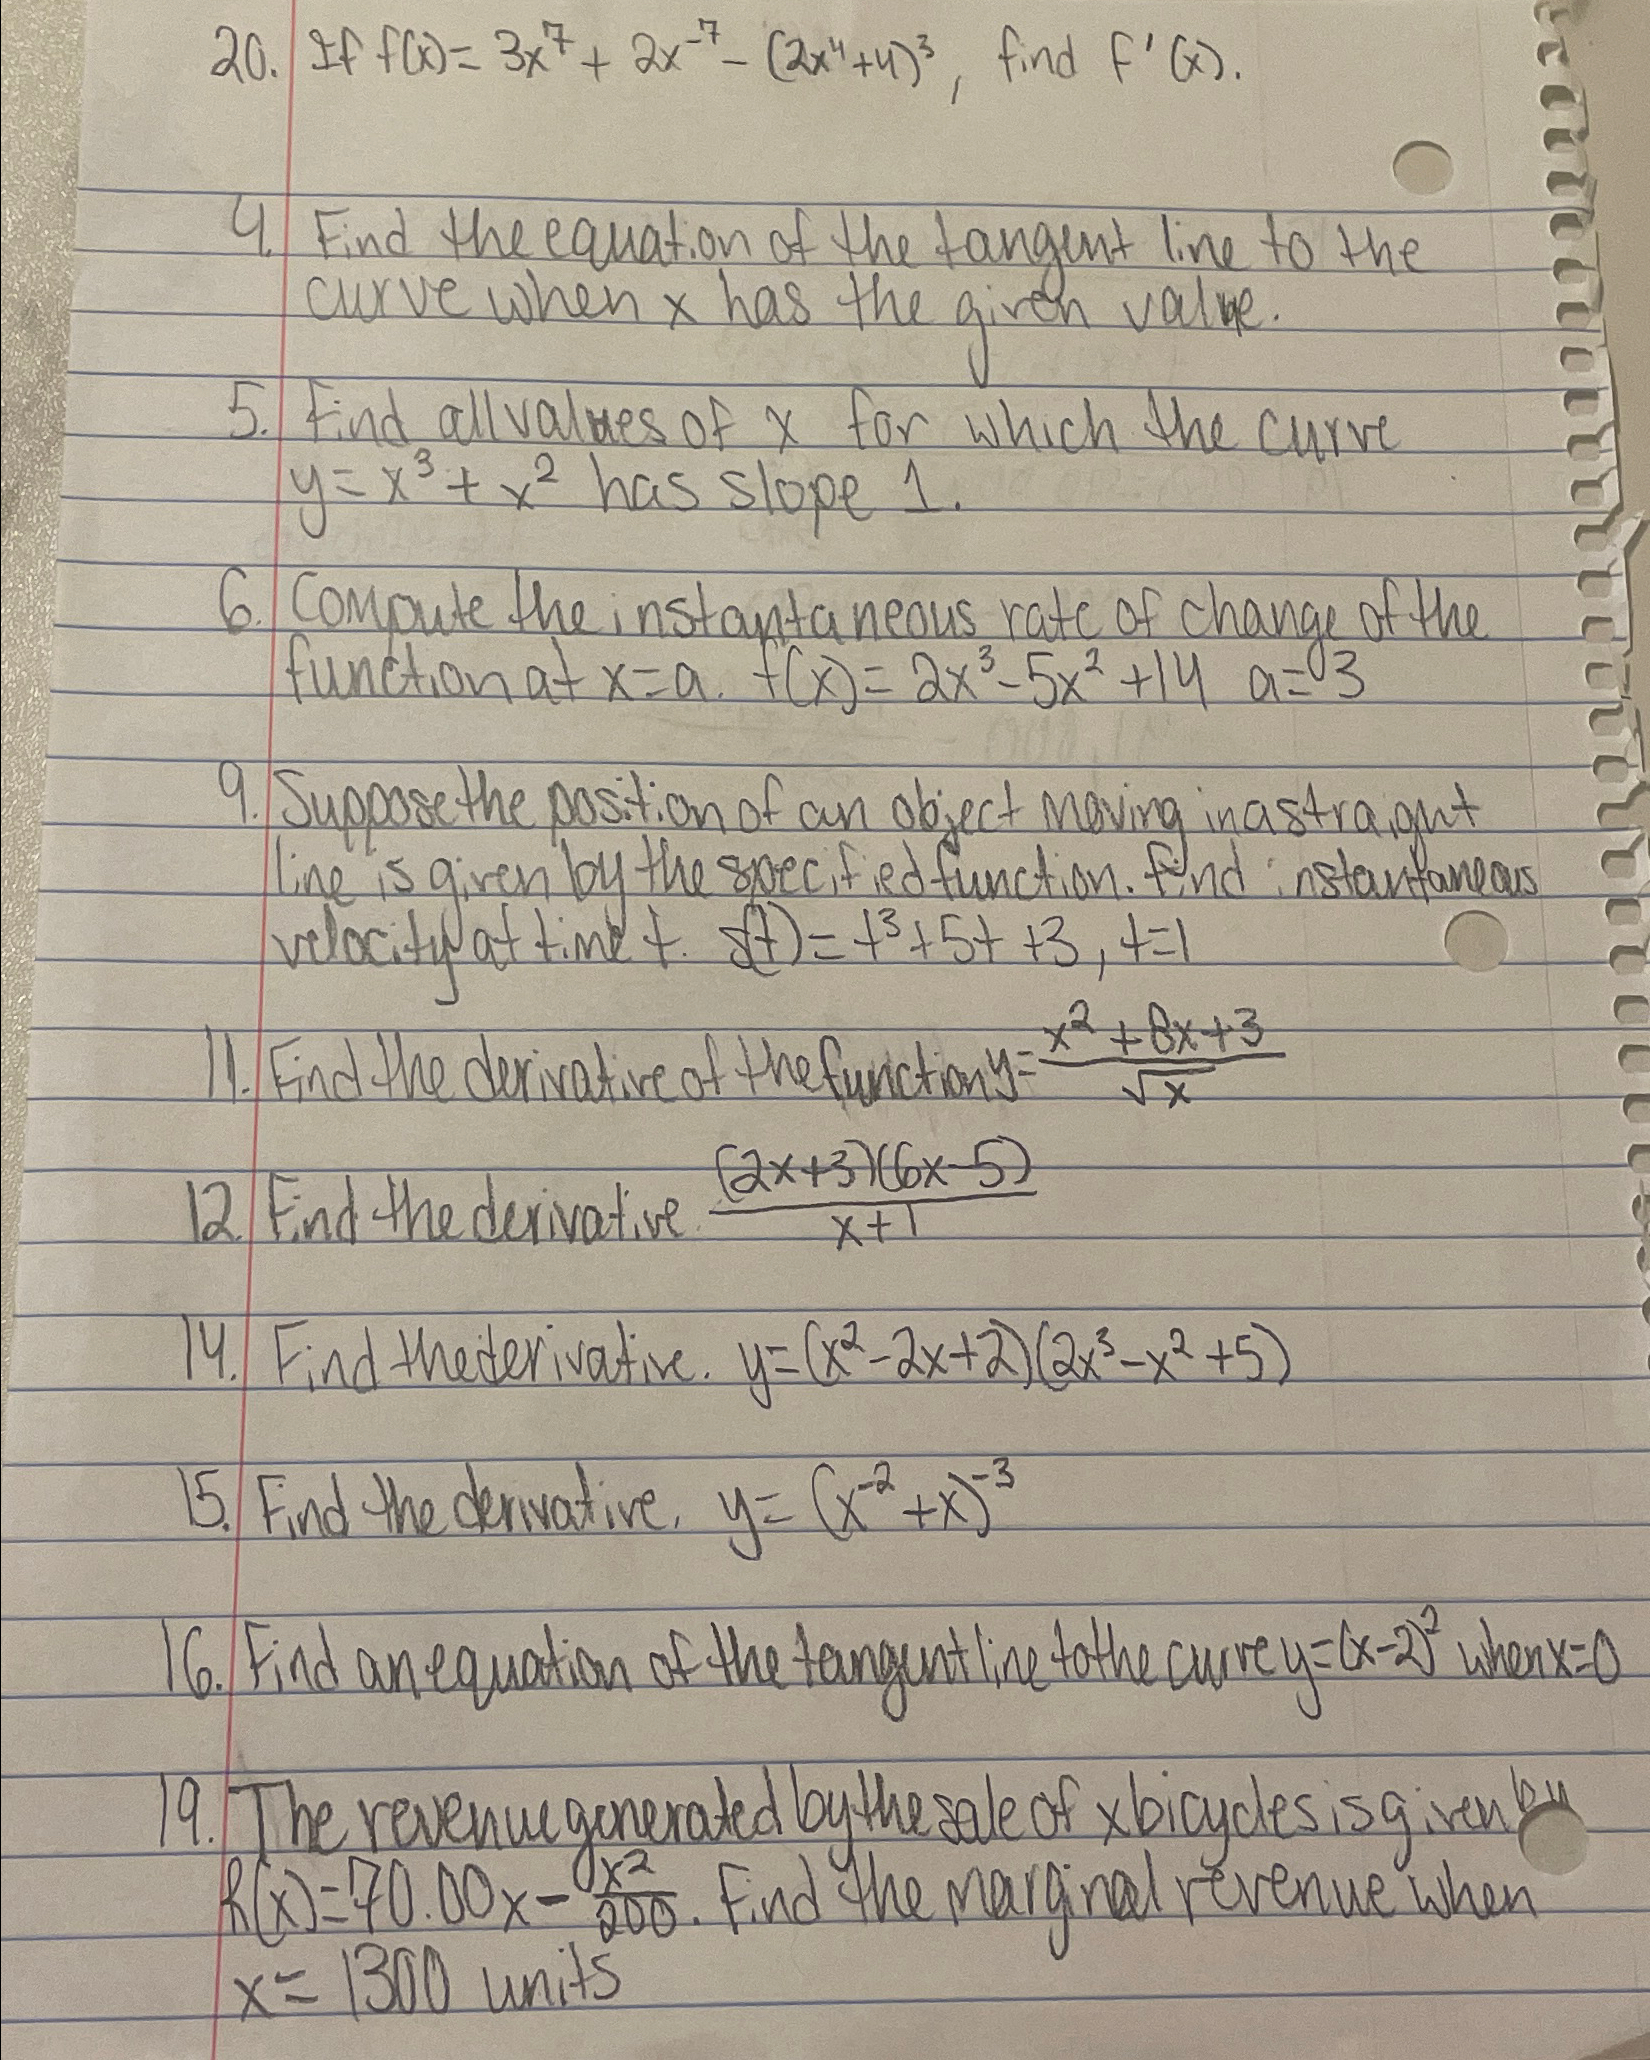 20. If f(x) = 3x⁷ + 2x⁻⁷ - (2x⁴+4)³, find f'(x).
4. Find the equation of the tangent line to the
curve when x has the given value.
5. Find all values of x for which the curve
y = x³ + x² has slope 1.
6. Compute the instantaneous rate of change of the
function at x = a. f(x) = 2x³ - 5x² + 14 a = 3
9. Suppose the position of an object moving in a straight
line is given by the specified function. Find instantaneous
velocity at time t. s(t) = t³ + 5t + 3, t = 1
11. Find the derivative of the function y = (x² + 8x + 3)/√x
12. Find the derivative. (2x+3)(6x-5)/(x+1)
14. Find the derivative. y = (x² - 2x + 2)(2x³ - x² + 5)
15. Find the derivative. y = (x⁻² + x)⁻³
16. Find an equation of the tangent line to the curve y = (x-2)² when x = 0
19. The revenue generated by the sale of x bicycles is given by
R(x) = 70.00x - x²/200. Find the marginal revenue when
x = 1300 units